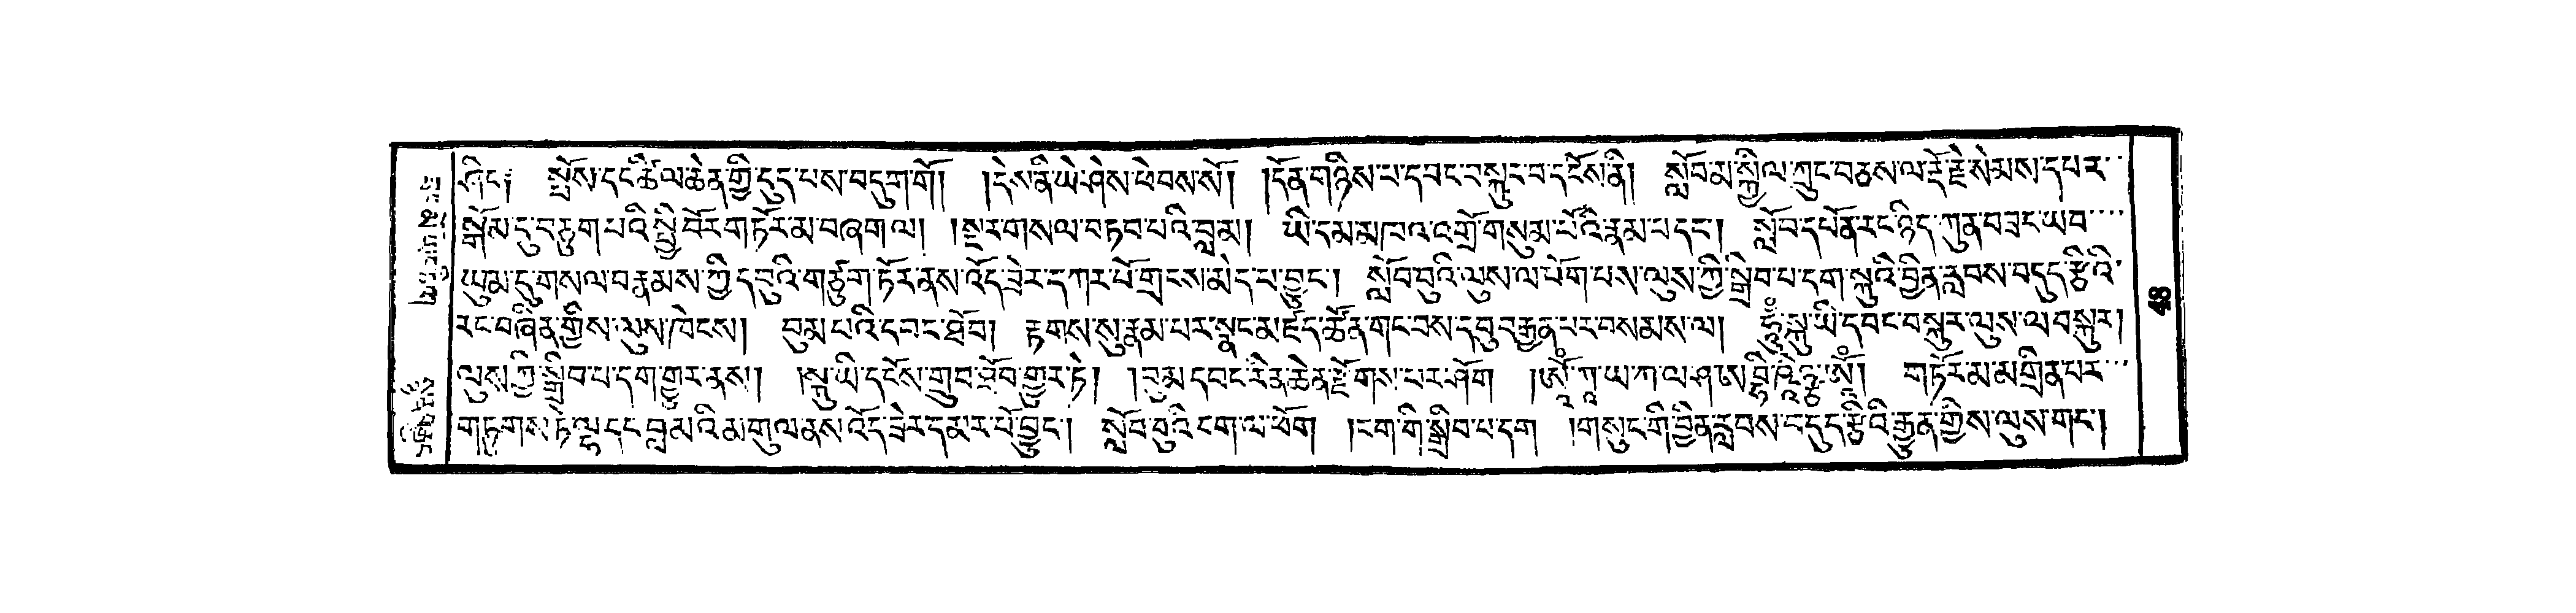 ཤིང་། སྤོས་དང་ཚིལ་ཆེན་གྱི་དུད་པས་བདུག་གོ། །དེས་ནི་ཡེ་ཤེས་ཕེབས་སོ། །དོན་གཉིས་པ་དབང་བསྐུར་བ་དངོས་ནི། སློབ་མ་སྐྱིལ་ཀྲུང་བཅས་ལ་རྡོ་རྗེ་སེམས་དཔར་
སྒོམ་དུ་བཅུག་པའི་སྤྱི་བོར་གཏོར་མ་བཞག་ལ། །སྔར་གསལ་བཏབ་པའི་བླ་མ། ཡི་དམ་མཁའ་འགྲོ་གསུམ་པོའི་རྣམ་པ་དང་། སློབ་དཔོན་རང་ཉིད་ཀུན་བཟང་ཡབ་
ཡུམ་དུ་གསལ་བ་རྣམས་ཀྱི་དབུའི་གཙུག་ཏོར་ནས་འོད་ཟེར་དཀར་པོ་གྲངས་མེད་པ་བྱུང་། སློབ་བུའི་ལུས་ལ་ཕོག་པས་ལུས་ཀྱི་སྒྲིབ་པ་དག སྐུའི་བྱིན་རླབས་བདུད་རྩིའི་
རང་བཞིན་གྱིས་ལུས་ཁེངས། བུམ་པའི་དབང་ཐོབ། རྟགས་སུ་རྣམ་པར་སྣང་མཛད་ཚོན་གང་བས་དབུ་བརྒྱན་པར་བསམས་ལ། ཧཱུྃ༔ སྐུ་ཡི་དབང་བསྐུར་ལུས་ལ་བསྐུར།
ལུས་ཀྱི་སྒྲིབ་པ་དག་གྱུར་ནས། །སྐུ་ཡི་དངོས་གྲུབ་ཐོབ་གྱུར་ཏེ། །བུམ་དབང་རིན་ཆེན་རྫོགས་པར་ཤོག །ཨོཾ་ཀཱ་ཡ་ཀ་ལ་ཤ་ཨ་བྷི་ཥིཉྩ་ཨོཾ། གཏོར་མ་མགྲིན་པར་
གཏུགས་ཏེ་ལྷ་དང་བླ་མའི་མགུལ་ནས་འོད་ཟེར་དམར་པོ་བྱུང་། སློབ་བུའི་ངག་ལ་ཕོག །ངག་གི་སྒྲིབ་པ་དག །གསུང་གི་བྱིན་རླབས་བདུད་རྩིའི་རྒྱུན་གྱིས་ལུས་གང་།